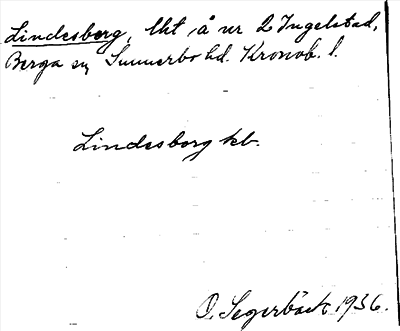 Lindesborg, lht å nr 2 Ingelstad,
Berga sn Sunnerbo hd. Kronob. l.
Lindesborg kb.
O. Segerbäck 1936.